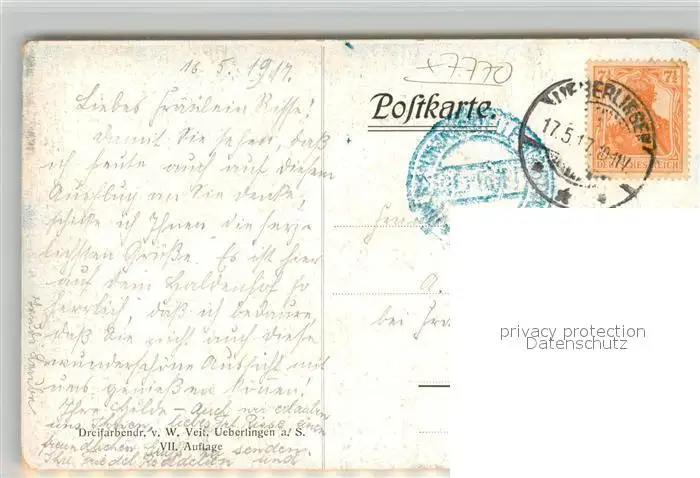 16. 5. 1917.
+7770
Liebes Fräulein
Postkarte.
UEBERLINGEN
17.5.17
7½ 7½
DEUTSCHES REICH
Damit Sie sehen, daß
ich heute auch auf diesem
Ausflug an Sie denke,
schicke ich Ihnen die herz-
lichsten Grüße. Es ist hier
auf dem Haldenhof so
herrlich, daß ich bedaure,
daß Sie nicht auch diese
wunderschöne Aussicht mit
uns genießen können!
bei
privacy protection
Datenschutz
Ihre Hilde – Auch wir erlauben
uns Ihnen, liebstes Frl.
Dreifarbendr. v. W. Veit, Ueberlingen a/S.
freundlichen zu senden.
VII. Auflage
Ihre und